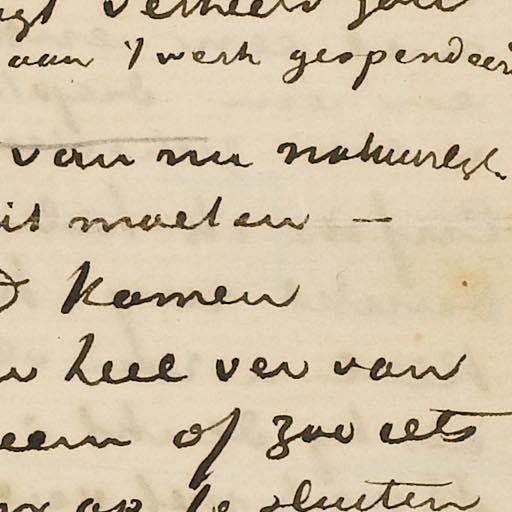 aan 't werk gespendeer
van nu natuurlijk.
it moeten —
komen
heel ver van
een of zoo iets
op te sluiten